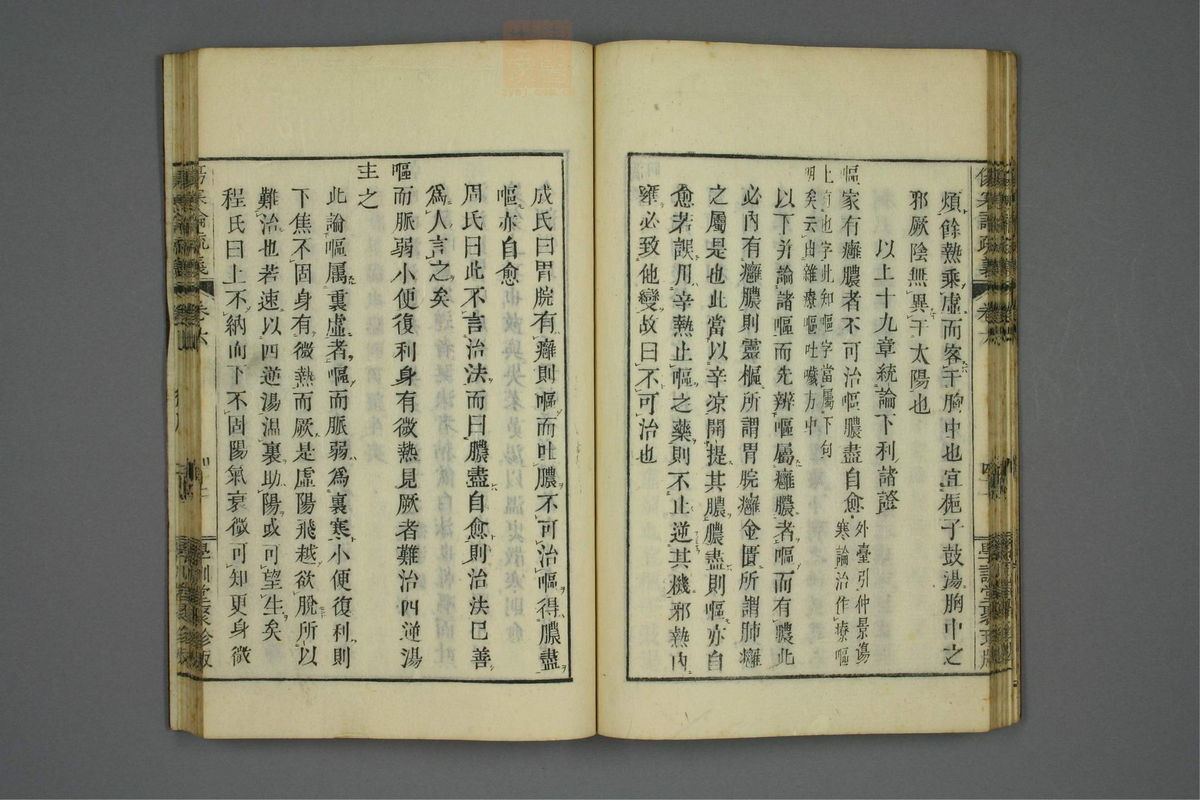 煩餘熱乘虛而客于胸中也宜梔子鼓湯胸中之
邪厥陰無異于太陽也
以上十九章統論下利諸證
嘔家有癰膿者不可治嘔膿盡自愈外臺引仲景傷
寒論治作療嘔
上有也字此知嘔字當屬下句
明矣云由雜療嘔吐噦方中
以下并論諸嘔而先辨嘔屬癰膿者嘔而有膿此
必內有癰膿則靈樞所謂胃脘癰金匱所謂肺癰
之屬是也此當以辛凉開提其膿膿盡則嘔亦自
愈若誤用辛熱止嘔之藥則不止逆其機邪熱內
壅必致他變故曰不可治也
成氏曰胃脘有癰則嘔而吐膿不可治嘔得膿盡
嘔亦自愈
周氏曰此不言治法而曰膿盡自愈則治法已善
爲人言之矣
嘔而脈弱小便復利身有微熱見厥者難治四逆湯
主之
此論嘔屬裏虛者嘔而脈弱爲裏寒小便復利則
下焦不固身有微熱而厥是虛陽飛越欲脫所以
難治也若速以四逆湯溫裏助陽或可望生矣
程氏曰上不納而下不固陽氣衰微可知更身微
卷六
學訓堂聚珍版